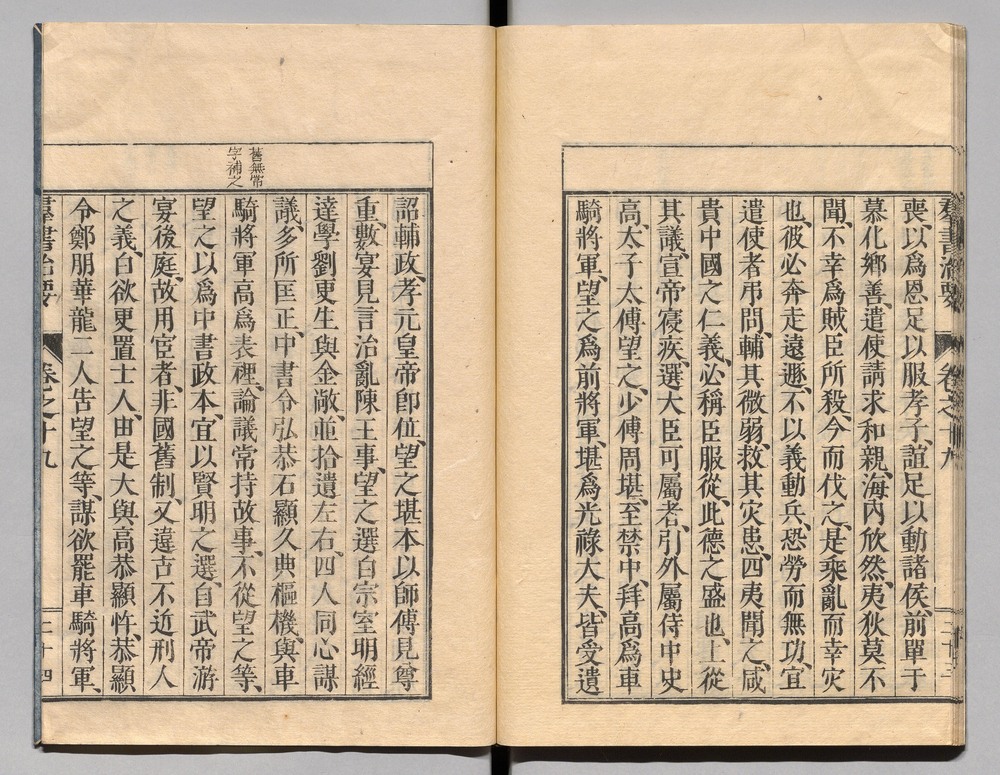 羣書治要 卷之十九 二十三
喪、以爲恩足以服孝子、誼足以動諸侯、前單于
慕化鄉善、遣使請求和親、海內欣然、夷狄莫不
聞、不幸爲賊臣所殺、今而伐之、是乘亂而幸灾
也、彼必奔走遠遯、不以義動兵、恐勞而無功、宜
遣使者弔問、輔其微弱、救其灾患、四夷聞之、咸
貴中國之仁義、必稱臣服從、此德之盛也、上從
其議、宣帝寝疾、選大臣可屬者、引外屬侍中史
高、太子太傅望之、少傅周堪、至禁中、拜高爲車
騎將軍、望之爲前將軍、堪爲光祿大夫、皆受遺
舊無常
字補之
詔輔政、孝元皇帝卽位、望之堪本以師傅見尊
重、數宴見言治亂陳王事、望之選白宗室明經
達學劉更生與金敞、並拾遺左右、四人同心謀
議、多所匡正、中書令弘恭石顯久典樞機、與車
騎將軍高爲表裡、論議常持故事、不從望之等、
望之以爲中書政本、宜以賢明之選、自武帝游
宴後庭、故用宦者、非國舊制、又違古不近刑人
之義、白欲更置士人、由是大與高恭顯忤、恭顯
令鄭朋華龍二人告望之等、謀欲罷車騎將軍、
羣書治要 卷之十九 二十四